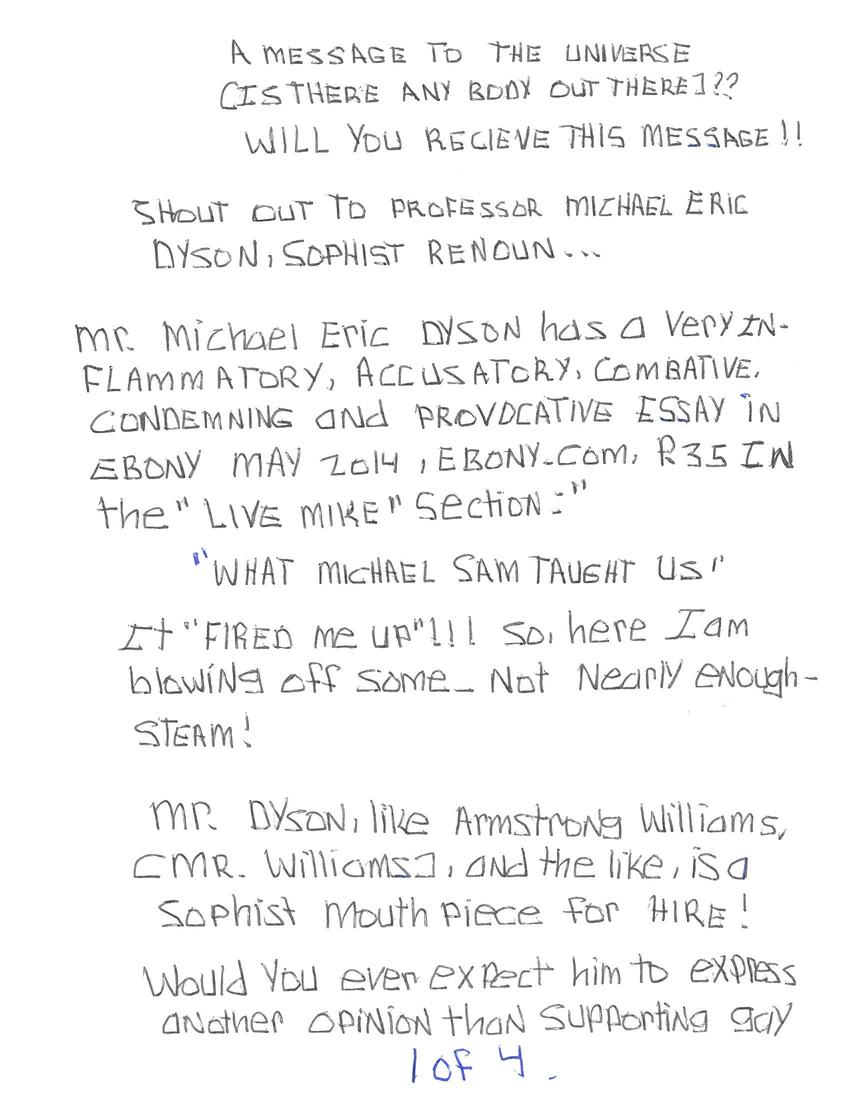 A MESSAGE TO THE UNIVERSE
[IS THERE ANY BODY OUT THERE]??
WILL YOU RECIEVE THIS MESSAGE!!
SHOUT OUT TO PROFESSOR MICHAEL ERIC
DYSON, SOPHIST RENOUN...
Mr. Michael Eric DYSON has a very IN-
FLAMMATORY, ACCUSATORY, COMBATIVE,
CONDEMNING and PROVOCATIVE ESSAY IN
EBONY MAY 2014, EBONY.COM, P.35 IN
the "LIVE MIKE" Section:"
"WHAT MICHAEL SAM TAUGHT US"
It "FIRED me UP"!!! So, here I am
blowing off some - Not Nearly enough -
STEAM!
Mr. DYSON, like Armstrong Williams,
[MR. Williams], and the like, is a
Sophist Mouth Piece for HIRE!
Would You ever expect him to express
another OPINION than Supporting gay
1 of 4.